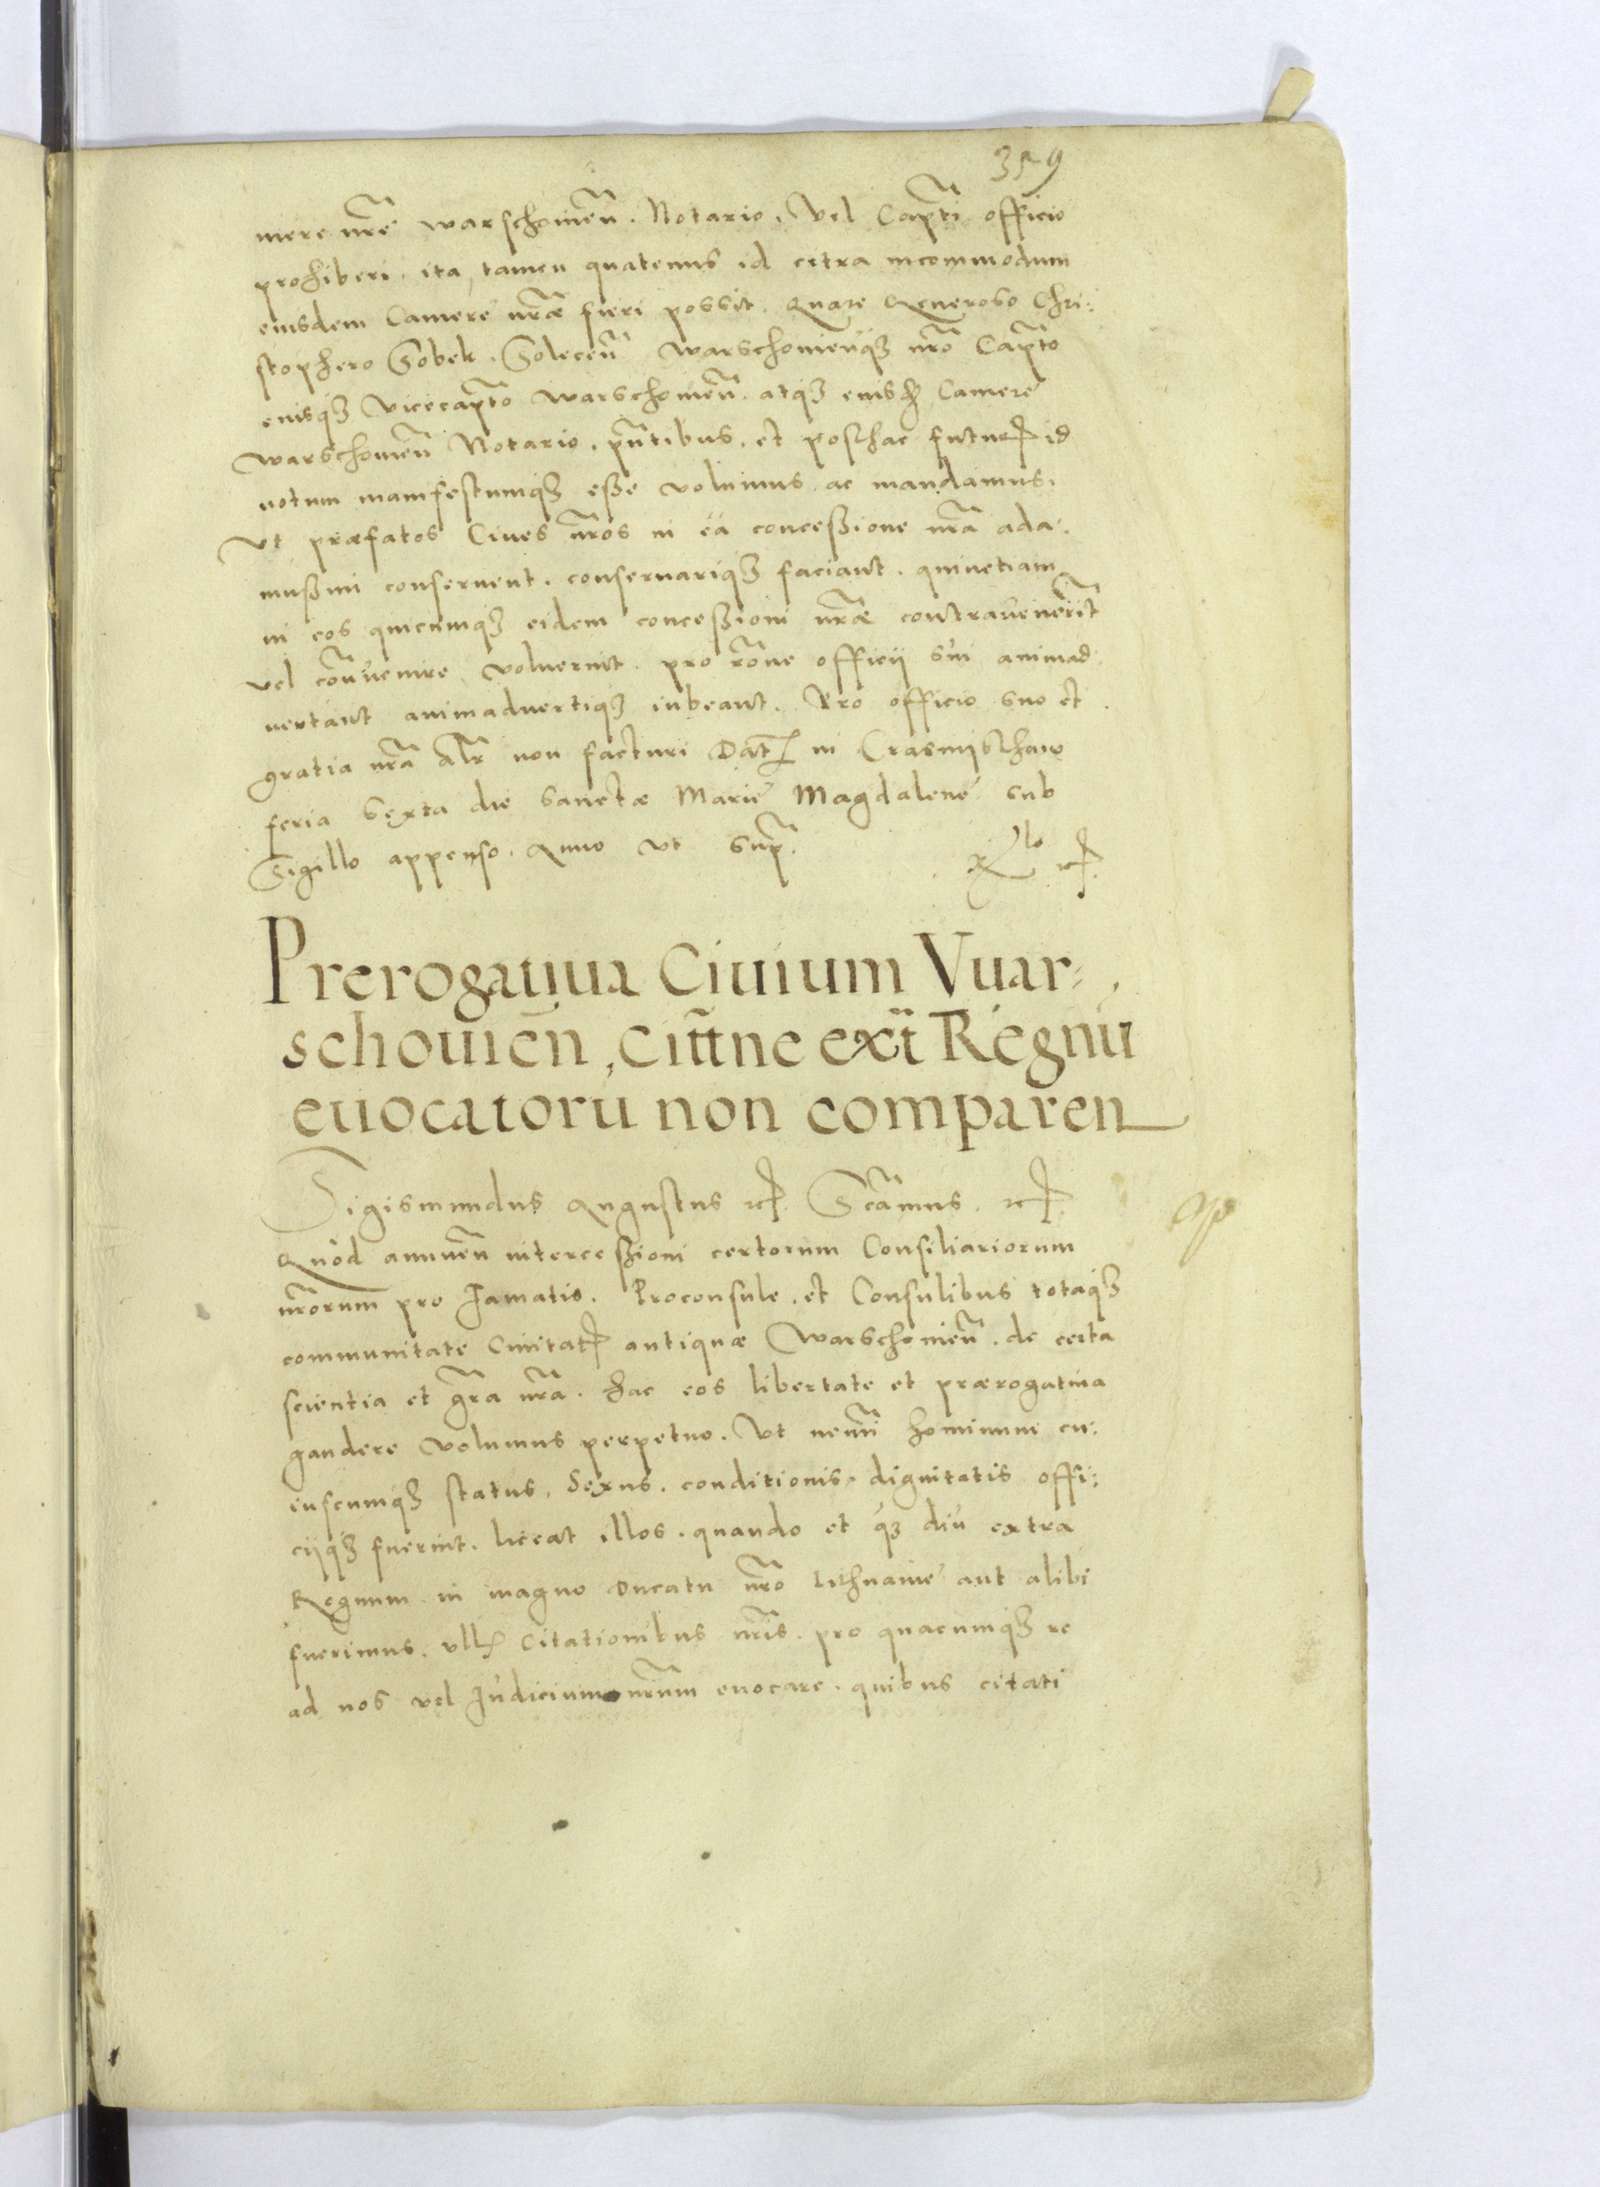 359
mere nr̃e warschouien̄. Notario, Vel Capt̃i officio
prohiberi. ita tamen quatenus id citra incommodum
eiusdem Camere nr̃æ fieri possit. Quare Generoso Chri:
stophero Sobek. Solecen̄ Warschouien̄q3 nr̃o Capt̃o
eiusq3 vicecapt̃o warschouien̄. atq3 eiusd Camere
warschouien̄ Notario. pñtibus. et posthac futur id
notum manifestumq3 eße volumus ac mandamus.
Vt præfatos Ciues nr̃os in ea conceßione nr̃a ada:
mußim conseruent. conseruariq3 faciant. quinetiam
in eos quicumq3 eidem conceßioni nr̃æ contrauenerit̃
vel cõuenire voluerint. pro rõne officii sui animad
uertant animaduertiq3 iubeant. Pro officio suo et
gratia nr̃a alr̃ non facturi Dat in Crasnisthaw
feria Sexta die sanctæ Marie Magdalene sub
Sigillo appenso. Anno vt sup̃.
Prerogatiua Ciuium Vuar-
schouien̄, cittne ext̃ Regnũ
euocatorũ non comparen
Sigismundus Augustus etc. Scãmus. etc.
Quod annuen̄ interceßioni certorum Consiliariorum
nr̃orum pro famatis. Proconsule. et Consulibus totaq3
communitate Ciuitat antiquæ Warschouien̄. de certa
scientia et gr̃a nr̃a. hac eos libertate et prærogatiua
gaudere volumus perpetuo. Vt nemini hominum cu:
iuscumq3 status, Sexus. conditionis, dignitatis offi:
ciiq3 fuerint. liceat illos. quando et q3 diu extra
Regnum in magno Ducatu nr̃o Lithuanie aut alibi
fuerimus. vll Citationibus nr̃is. pro quacumq3 re
ad nos vel Iudicium nr̃um euocare. quibus citati